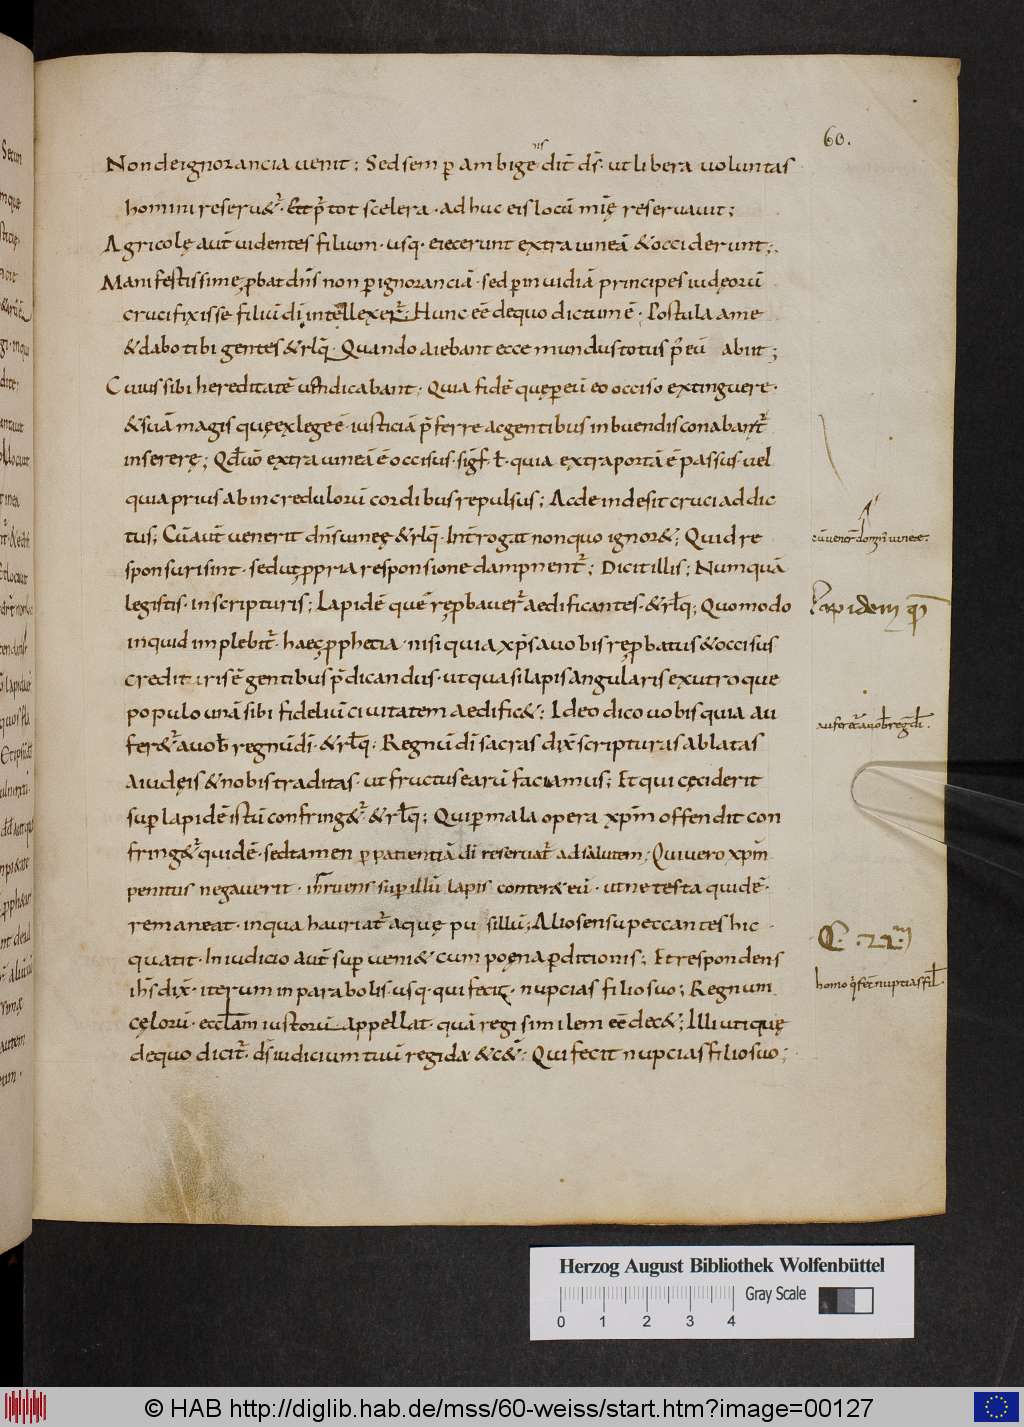 60.
Non de ignorancia venit; Sed semp̱ ambigenis dic̄ ds̄. ut libera voluntas
homini reserv&ur̄. Et p̄ tot scelera. adhuc eis locū mīę reservavit;
Agricolę aut̄ videntes filium. usq. eiecerunt extra vineā & occiderunt;
Manifestissime p̱bat dn̄s non p̱ ignoranciā. sed p̱ invidiā principes iudęorū
crucifixisse filiū dī intellexer̄. Hunc eē de quo dictum ē. Postula a me
& dabo tibi gentes & rl̄q. Quando aiebant ecce mundus totus p̄ eū abiit;
Cuius sibi hereditatē vindicabant. Quia fidē quę p̱ eū eo occiso extinguere.
& suā magis quę ex lege ē. iusticiā p̄ferre ac gentibus inbuendis conabant̄
inserere; Qd̄ vō extra vineā ē occisus. sigf. ł. quia extra portā ē passus. vel
quia prius ab incredulorū cordibus repulsus; Ac deinde sit cruci addic
tus; Cū aut̄ venerit dn̄s vineę & rl̄q. Int̄rogat non quo ignor&; Quid re
sponsuri sint. sed ut p̱pria responsione dampnent̄; Dicit illis; Numquā
legistis. in scripturis; Lapidē quē rep̱baver̄ aedificantes. & rl̄q; Quomodo
inquid implebit̄. haec p̱phetia. nisi quia xp̄s a vobis rep̱batus & occisus
credituris ē gentibus p̄dicandus. ut quasi lapis angularis ex utroque
populo unā sibi fideliū civitatem aedific&; Ideo dico vobis quia au
fer&ur̄ a vob̄ regnū dī. & rl̄q; Regnū dī sacras dix̄ scripturas ablatas
a iudęis & nobis traditas. ut fructus earū faciamus; Et qui cęciderit
sup̱ lapidē istū confring&ur̄ & rl̄q; Qui p̱ mala opera xp̄m offendit con
fring&ur̄ quidē. sed tamen p̱ patientiā dī reservat̄ ad salutem; Qui vero xp̄m
penitus negaverit. irruens sup̱ illū lapis conter& eū. ut ne testa quidē.
remaneat. in qua hauriat̄ aquę pusillū; Alio sensu peccantes hic
quatit. In iudicio aut̄ sup̱veni& cum poęna p̱ditionis; Et respondens
ih̄s dix̄. iterum in parabolis. usq. qui fecit. nupcias filio suo; Regnum
cęlorū. eccl̄am iustorū appellat. quā regi similem eē dec&; Illi utiquę
de quo dicit̄. ds̄ iudicium tuū regi da & c&; Qui fecit nupcias filio suo;
cū vener̄ domin̄ vineae.
Lapidem qē
auferet̄ a vob̄ regn̄ dī.
C. 21.m
homo q fēc nupcias fił.
Herzog August Bibliothek Wolfenbüttel
Gray Scale
0 1 2 3 4
© HAB http://diglib.hab.de/mss/60-weiss/start.htm?image=00127